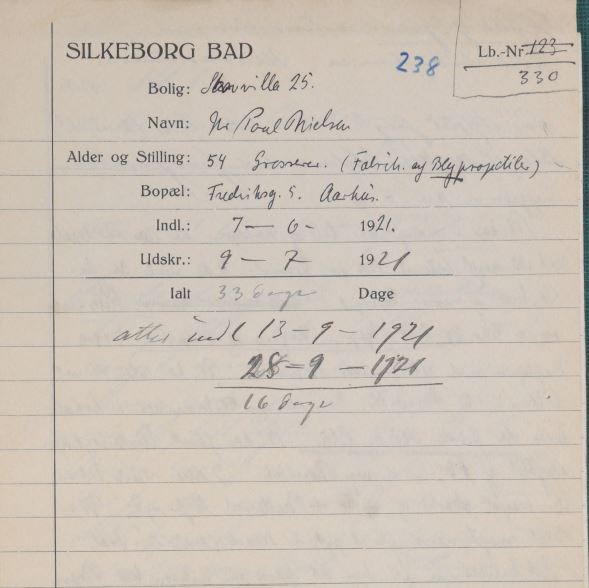 SILKEBORG BAD
238
Lb.-Nr 123
330
Bolig: Skovvilla 25.
Navn: Hr Poul Nielsen
Alder og Stilling: 54 Grosserer. (Fabrik. af Blyprojectiler)
Bopæl: Fredriksg. 5. Aarhus.
Indl.: 7 — 6 - 1921.
Udskr.: 9 — 7 1921
Ialt 33 dage Dage
atter indl 13 - 9 - 1921
28 - 9 - 1921
16 dage